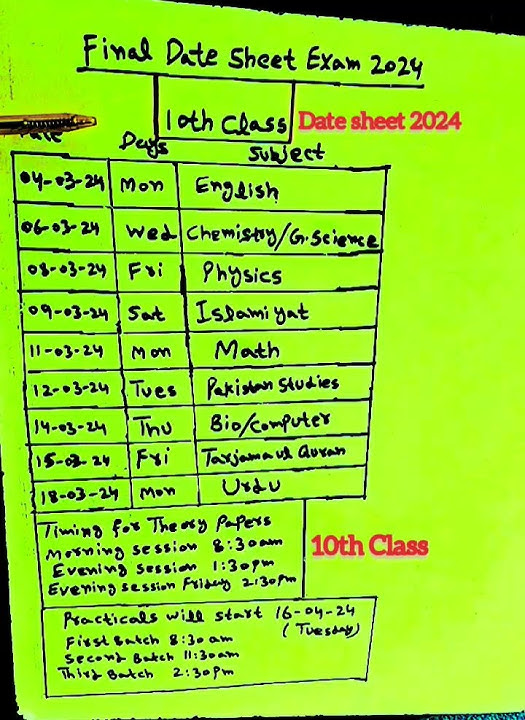 Final Date Sheet Exam 2024
10th Class Date sheet 2024
Days Subject
04-03-24 Mon English
06-03-24 Wed Chemistry/G.Science
08-03-24 Fri Physics
09-03-24 Sat Islamiyat
11-03-24 Mon Math
12-03-24 Tues Pakistan Studies
14-03-24 Thu Bio/Computer
15-03-24 Fri Tarjama ul Quran
18-03-24 Mon Urdu
Timing for Theory Papers
Morning session 8:30am
Evening session 1:30pm
Evening session Friday 2:30pm
10th Class
Practicals will start 16-04-24
(Tuesday)
First Batch 8:30am
Second Batch 11:30am
Third Batch 2:30pm